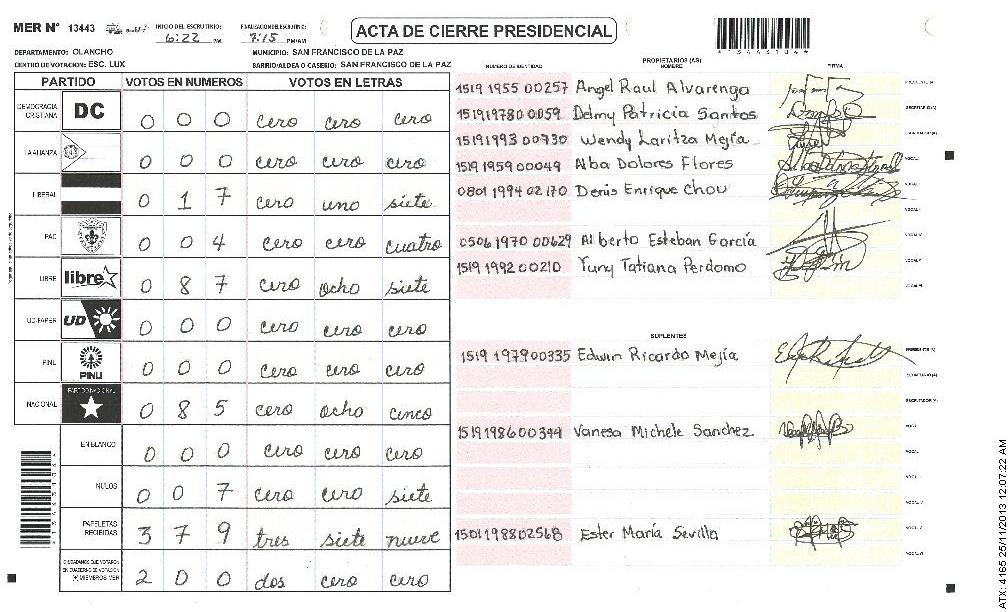 MER N° 13443 INICIO DEL ESCRUTINIO: 6:22 PM FINALIZACION DEL ESCRUTINIO: 7:15 PM/AM ACTA DE CIERRE PRESIDENCIAL
DEPARTAMENTO: OLANCHO MUNICIPIO: SAN FRANCISCO DE LA PAZ
CENTRO DE VOTACION: ESC. LUX BARRIO/ALDEA O CASERIO: SAN FRANCISCO DE LA PAZ
PARTIDO VOTOS EN NUMEROS VOTOS EN LETRAS
DEMOCRACIA CRISTIANA DC 0 0 0 cero cero cero
LA ALIANZA 0 0 0 cero cero cero
LIBERAL 0 1 7 cero uno siete
PAC 0 0 4 cero cero cuatro
LIBRE libre 0 8 7 cero ocho siete
UD-FAPER UD 0 0 0 cero cero cero
PINU PINU 0 0 0 cero cero cero
NACIONAL PARTIDO NACIONAL 0 8 5 cero ocho cinco
EN BLANCO 0 0 0 cero cero cero
NULOS 0 0 7 cero cero siete
PAPELETAS RECIBIDAS 3 7 9 tres siete nueve
CIUDADANOS QUE VOTARON EN CUADERNO DE VOTACION (+) MIEMBROS MER 2 0 0 dos cero cero
PROPIETARIOS (AS)
NUMERO DE IDENTIDAD NOMBRE FIRMA
1519 1955 00257 Angel Raul Alvarenga PRESIDENTE (A)
1519197800059 Delmy Patricia Santos SECRETARIO (A)
15191993 00730 Wendy Laritza Mejía ESCRUTADOR (A)
1519 1959 00049 Alba Dolores Flores VOCAL I
0801 1994 02170 Denis Enrique Chou VOCAL II
VOCAL III
0506 1970 00629 Alberto Esteban García VOCAL IV
1519 1992 00210 Yuny Tatiana Perdomo VOCAL V
VOCAL VI
SUPLENTES
1519 197900335 Edwin Ricardo Mejía PRESIDENTE (A)
SECRETARIO (A)
ESCRUTADOR (A)
1519198600344 Vanesa Michele Sanchez VOCAL I
VOCAL II
VOCAL III
VOCAL IV
1501198802568 Ester María Sevilla VOCAL V
VOCAL VI
ATX: 4165 25/11/2013 12:07:22 AM